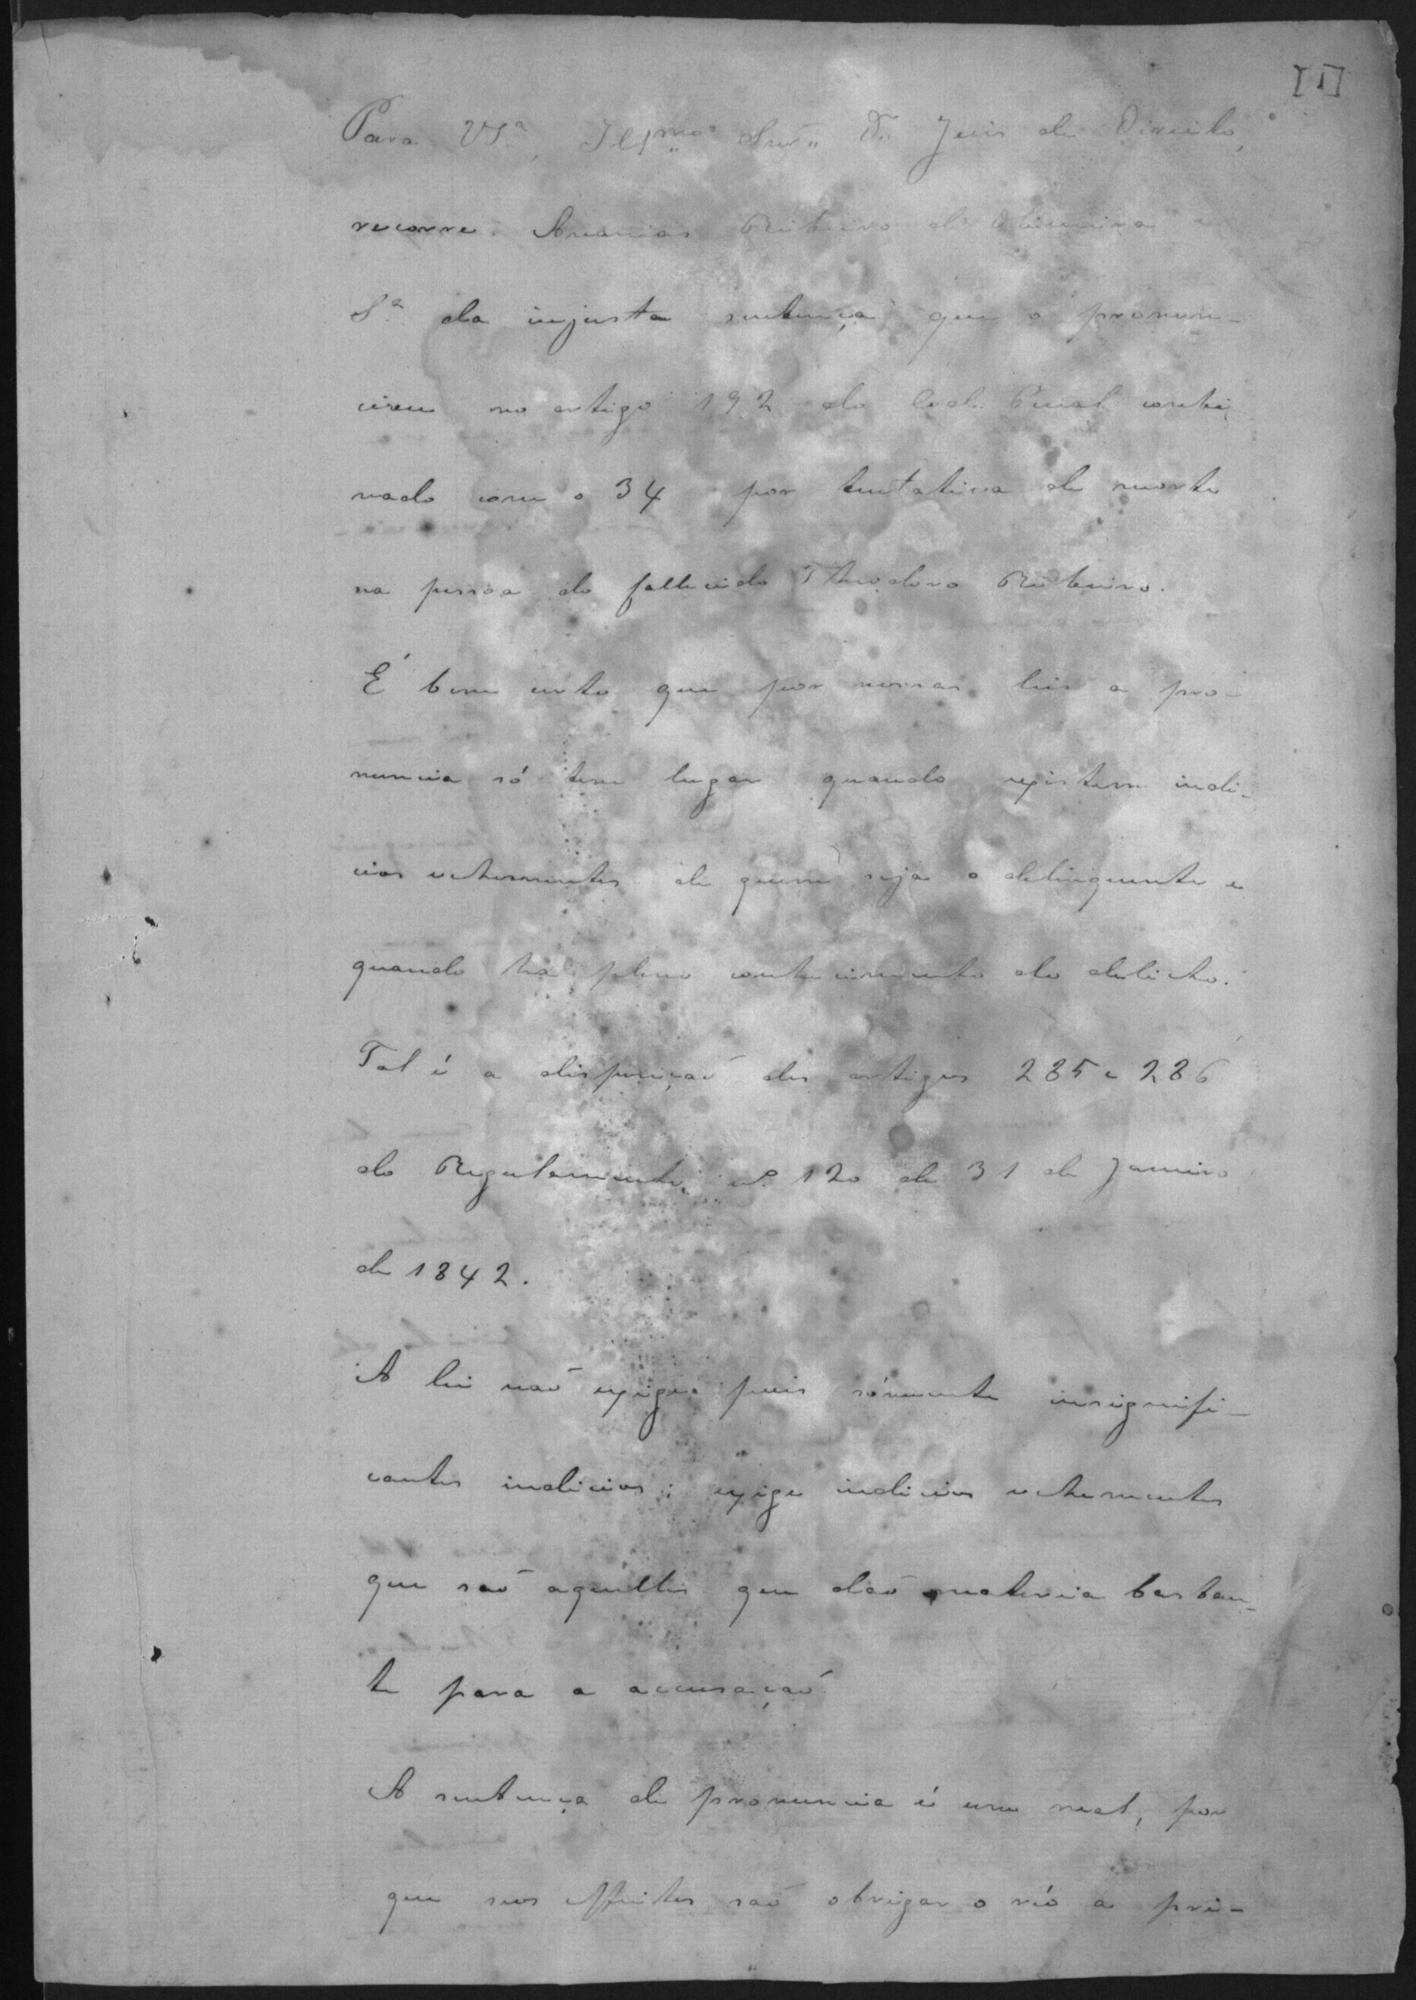 [1]
Para V Sª, Illmo Snr. Dr. Juis de Direito,
recorre Ananias Ribeiro de Oliveira e
Sª da injusta sentença que o pronun-
ciou no artigo 192 do Cod. Penal combi
nado com o 34 por tentativa de morte
na pessoa do fallecido Theodoro Ribeiro.
É bem certo que por nossas leis a pro-
nuncia só tem lugar quando existem indi-
cios vehementes de quem seja o delinquente e
quando ha pleno conhecimento do delicto.
Tal é a disposição dos artigos 285 e 286
do Regulamento nº 120 de 31 de Janeiro
de 1842.
A lei naõ exige pois sómente insignifi-
cantes indicios; exige indicios vehementes
que saõ aquelles que daõ materia bastan-
te para a accusaçaõ
A sentença de pronuncia é um mal, por
que seus effeitos saõ obrigar o réo a pri-